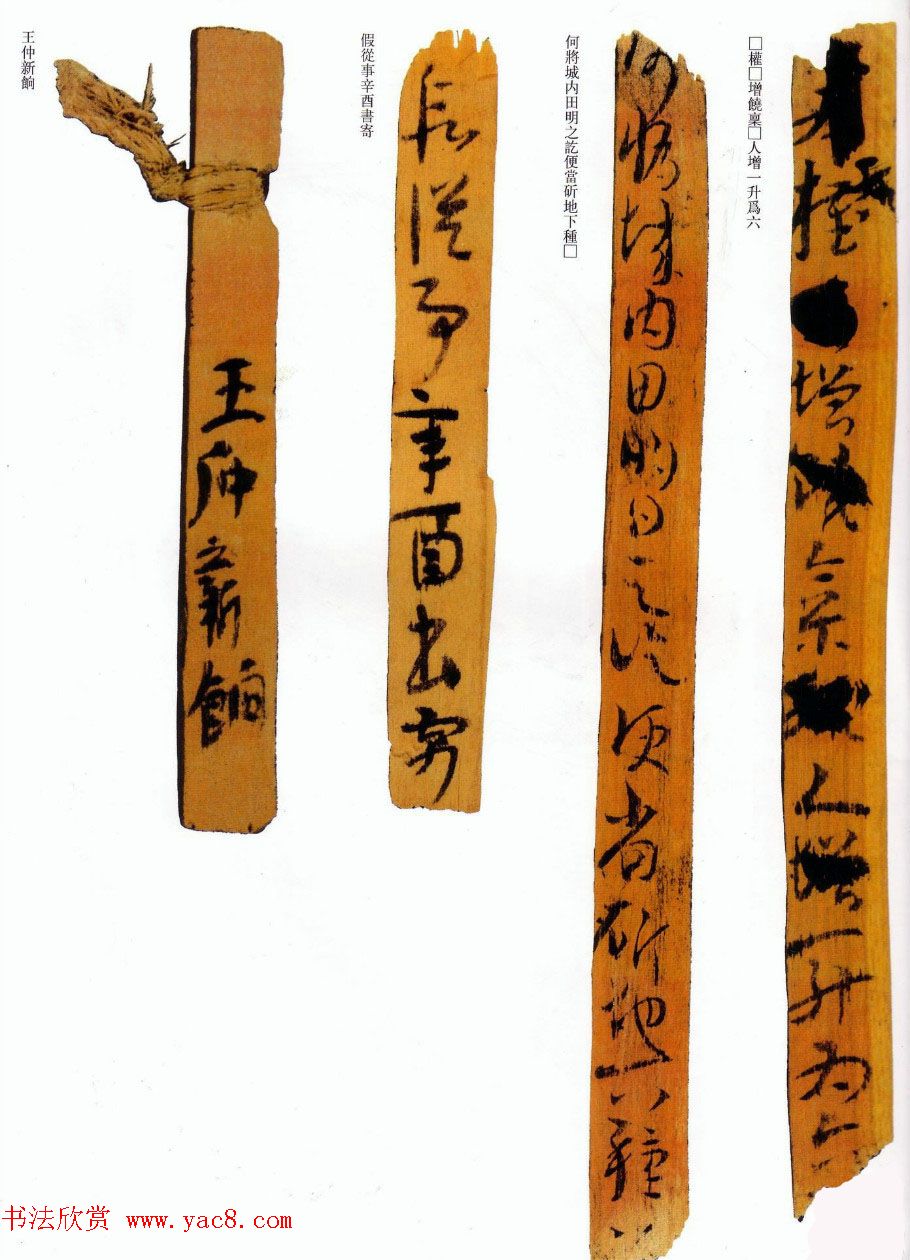 權增饒稟人增一升為六
□權□增饒稟□人增一升爲六
何將城内田明日之訖便當斫地下種
何將城内田明之訖便當斫地下種□
從事辛酉書寄
假從事辛酉書寄
王仲新餉
王仲新餉
书法欣赏 www.yac8.com